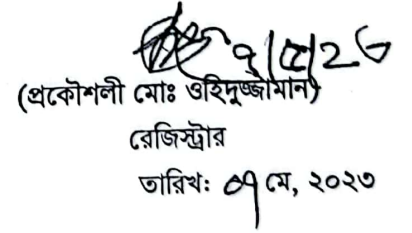 ৭/৫/২৩
(প্রকৌশলী মোঃ ওহিদুজ্জামান)
রেজিস্ট্রার
তারিখঃ ০৭ মে, ২০২৩